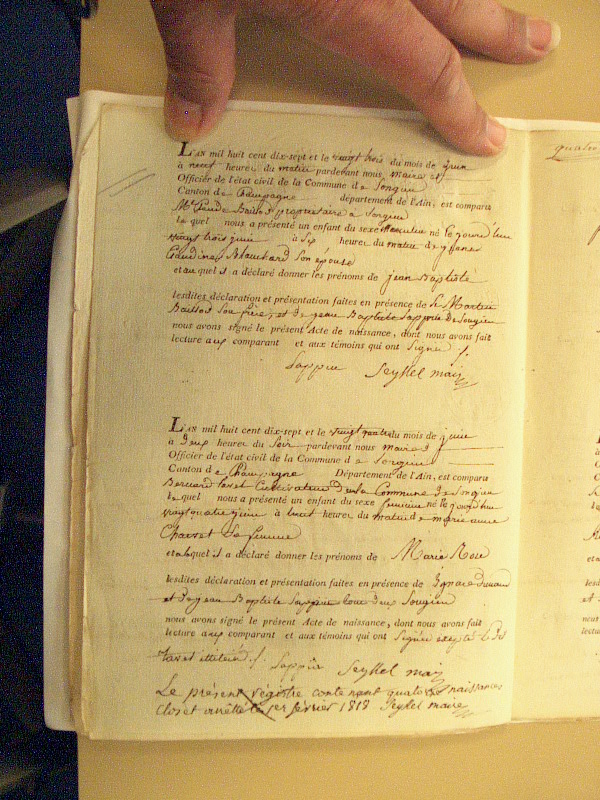 L'AN mil huit cent dix-sept et le vingt trois du mois de juin
à neuf heures du matin pardevant nous maire et
Officier de l'état civil de la Commune de Songieu
Canton de Champagne département de l'Ain, est comparu
propriétaire a Songieu
lequel nous a présenté un enfant du sexe masculin né le jourd'hui
vingt trois juin à six heures du matin de
Claudine Blanchard son épouse
et auquel il a déclaré donner les prénoms de jean Baptiste
lesdites déclaration et présentation faites en présence de Martin
son père, et de jean Baptiste Sappin de Songieu
nous avons signé le présent Acte de naissance, dont nous avons fait
lecture aux comparant et aux témoins qui ont Signé ./.
Sappin Seyssel maire
L'AN mil huit cent dix-sept et le vingt quatre du mois de juin
à deux heures du Soir pardevant nous maire
Officier de l'état civil de la Commune de Songieu
Canton de Champagne Département de l'Ain, est comparu
Bernard tavet Cultivateur de la Commune de Songieu
lequel nous a présenté un enfant du sexe feminin né le jourd'hui
vingt quatre juin à heures du matin de marie anne
Charvet Sa femme
et auquel il a déclaré donner les prénoms de Marie Rose
lesdites déclaration et présentation faites en présence de Ignace
et de jean Baptiste Sappin tous deux Songieu
nous avons signé le présent Acte de naissance, dont nous avons fait
lecture aux comparant et aux témoins qui ont Signé excepté le dit
tavet ./. Sappin Seyssel maire
Le présent régistre contenant quatorze naissances
Clos et arrêté le 1er février 1818 Seyssel maire
quatre